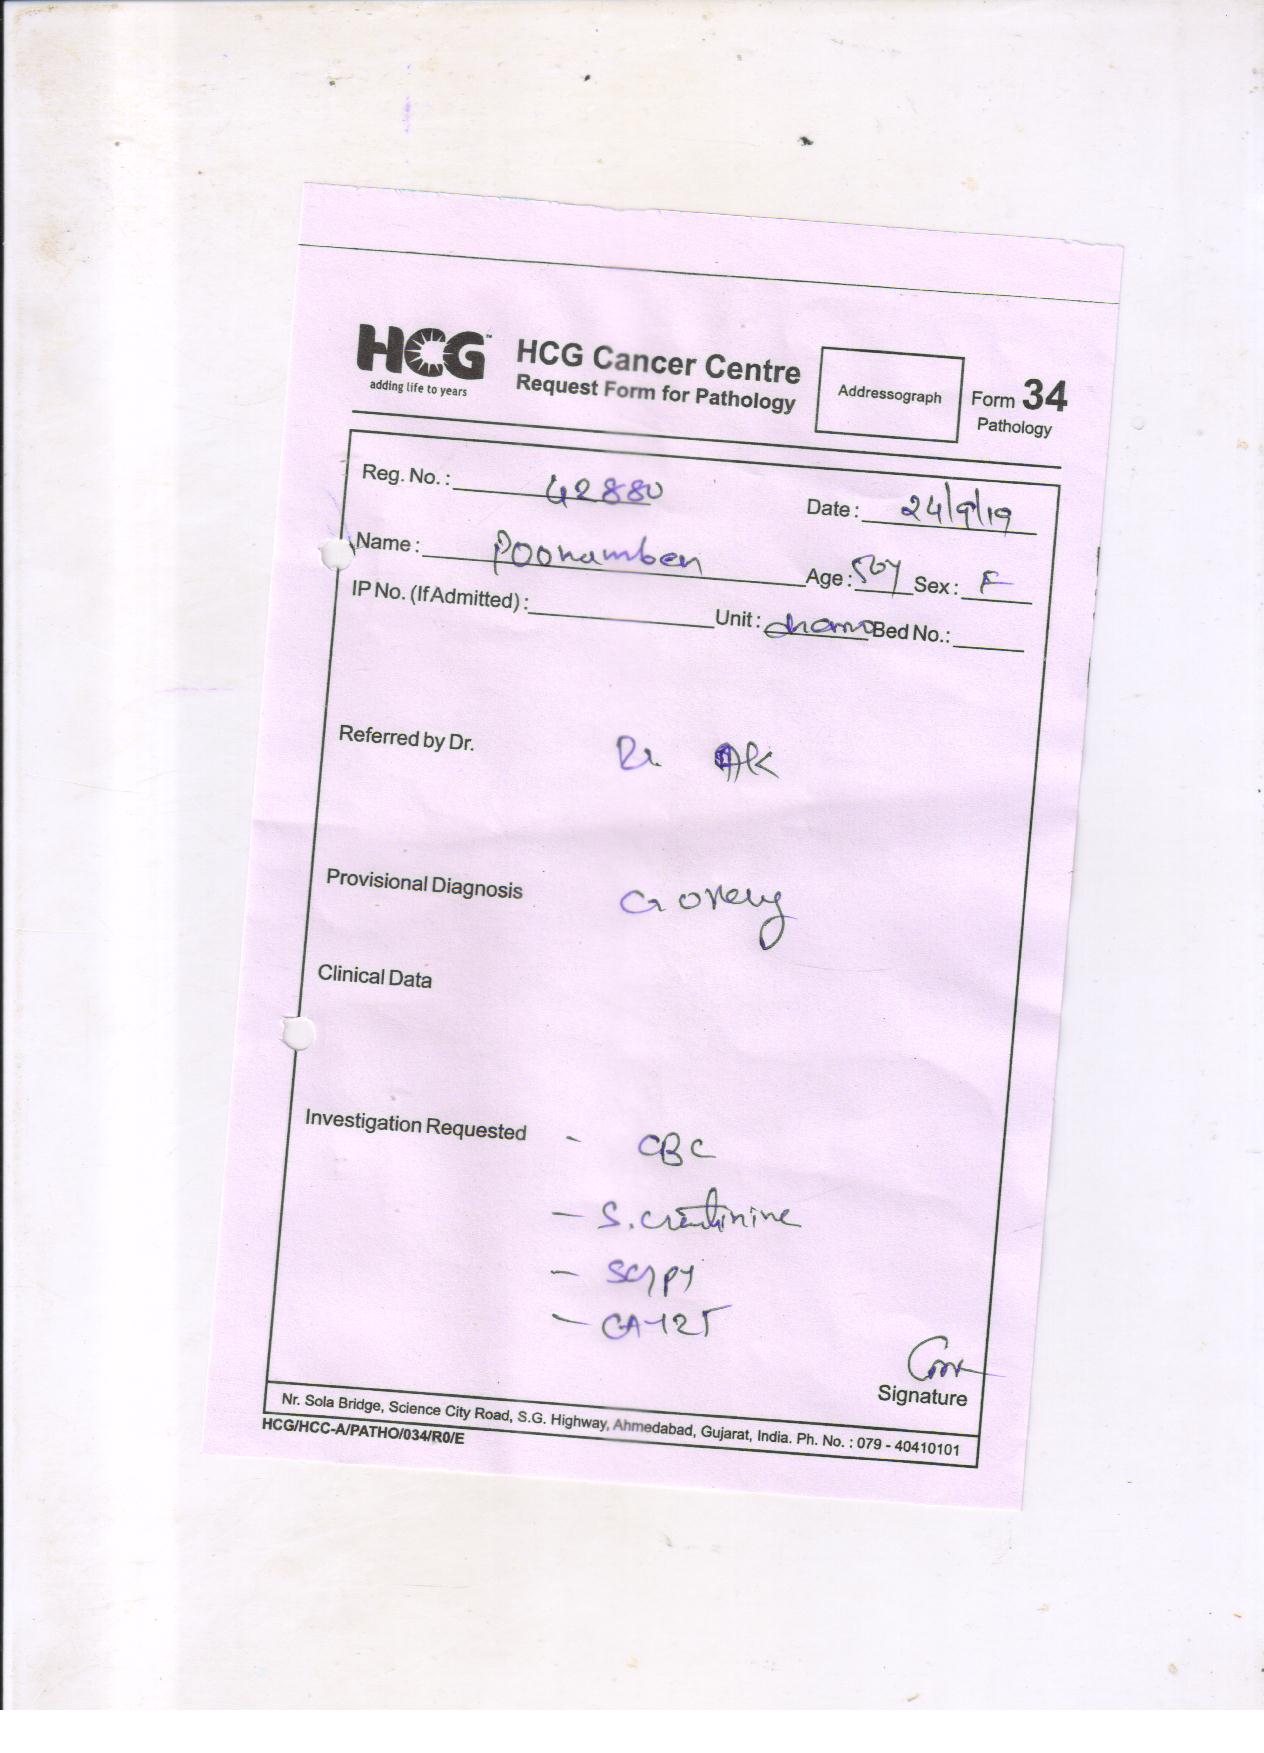 HCG™
adding life to years
HCG Cancer Centre
Request Form for Pathology
Addressograph
Form 34
Pathology
Reg. No.: 42880
Date: 24/9/19
Name: Poonamben
Age: 50y Sex: F
IP No. (If Admitted):
Unit: Bed No.:
Referred by Dr. Dr. AK
Provisional Diagnosis Ca ovary
Clinical Data
Investigation Requested - CBC
- S. creatinine
- SGPT
- CA-125
Signature
Nr. Sola Bridge, Science City Road, S.G. Highway, Ahmedabad, Gujarat, India. Ph. No. : 079 - 40410101
HCG/HCC-A/PATHO/034/R0/E